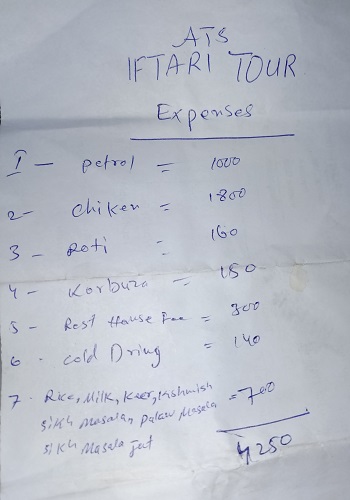 ATS
IFTARI TOUR
Expenses
1 - Petrol = 1000
2 - Chiken = 1800
3 - Roti = 160
4 - Korbuza = 150
5 - Rest House Fee = 300
6 - Cold Dring = 140
7 - Rice, Milk, Keer, Kishmish
Sikh Masala, Palaw Masala = 700
Sikh Masala
4250